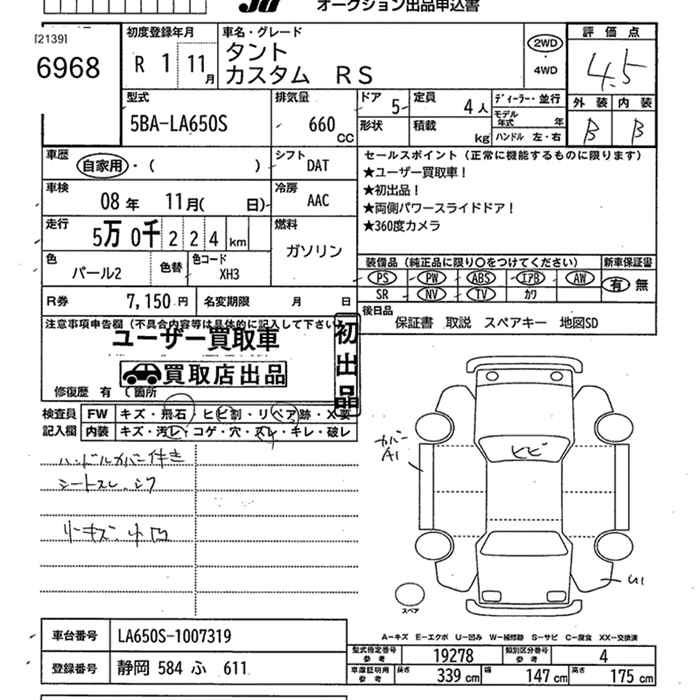 オークション出品申込書
[2139]
6968
初度登録年月
R 1 11月
車名・グレード
タント
カスタム RS
2WD
・
4WD
評価点
4.5
型式
5BA-LA650S
排気量
660 CC
ドア 5
定員 4人
形状
積載 kg
ディーラー・並行
モデル年式 年
ハンドル 左・右
外装 内装
B B
車歴
自家用・( )
シフト
DAT
車検
08年 11月( 日)
冷房
AAC
走行
5万 0千 2 2 4 km
燃料
ガソリン
色
パール2
色替
色コード
XH3
R券 7,150円
名変期限 月 日
セールスポイント (正常に機能するものに限ります)
★ユーザー買取車!
★初出品!
★両側パワースライドドア!
★360度カメラ
装備品 (純正品に限り○をつけてください)
新車保証書
PS PW ABS エアB AW
有 無
SR NV TV カワ
後日品
保証書 取説 スペアキー 地図SD
注意事項申告欄 (不具合内容等は具体的に記入して下さい)
ユーザー買取車
買取店出品
初出品
修復歴 有 ( 箇所
検査員
記入欄
FW キズ・飛石・ヒビ割・リペア跡・X要
内装 キズ・汚レ・コゲ・穴・スレ・キレ・破レ
ハンドルカバー付き
シートスレ、シワ
リーキズ、小凹
カバー
A1
ヒビ
U1
スペア
A-キズ E-エクボ U-凹み W-補修跡 S-サビ C-腐食 XX-交換済
車台番号 LA650S-1007319
登録番号 静岡 584 ふ 611
型式指定番号
参考
19278
類別区分番号
参考
4
車庫証明用
参考
長さ 339 cm 幅 147 cm 高さ 175 cm